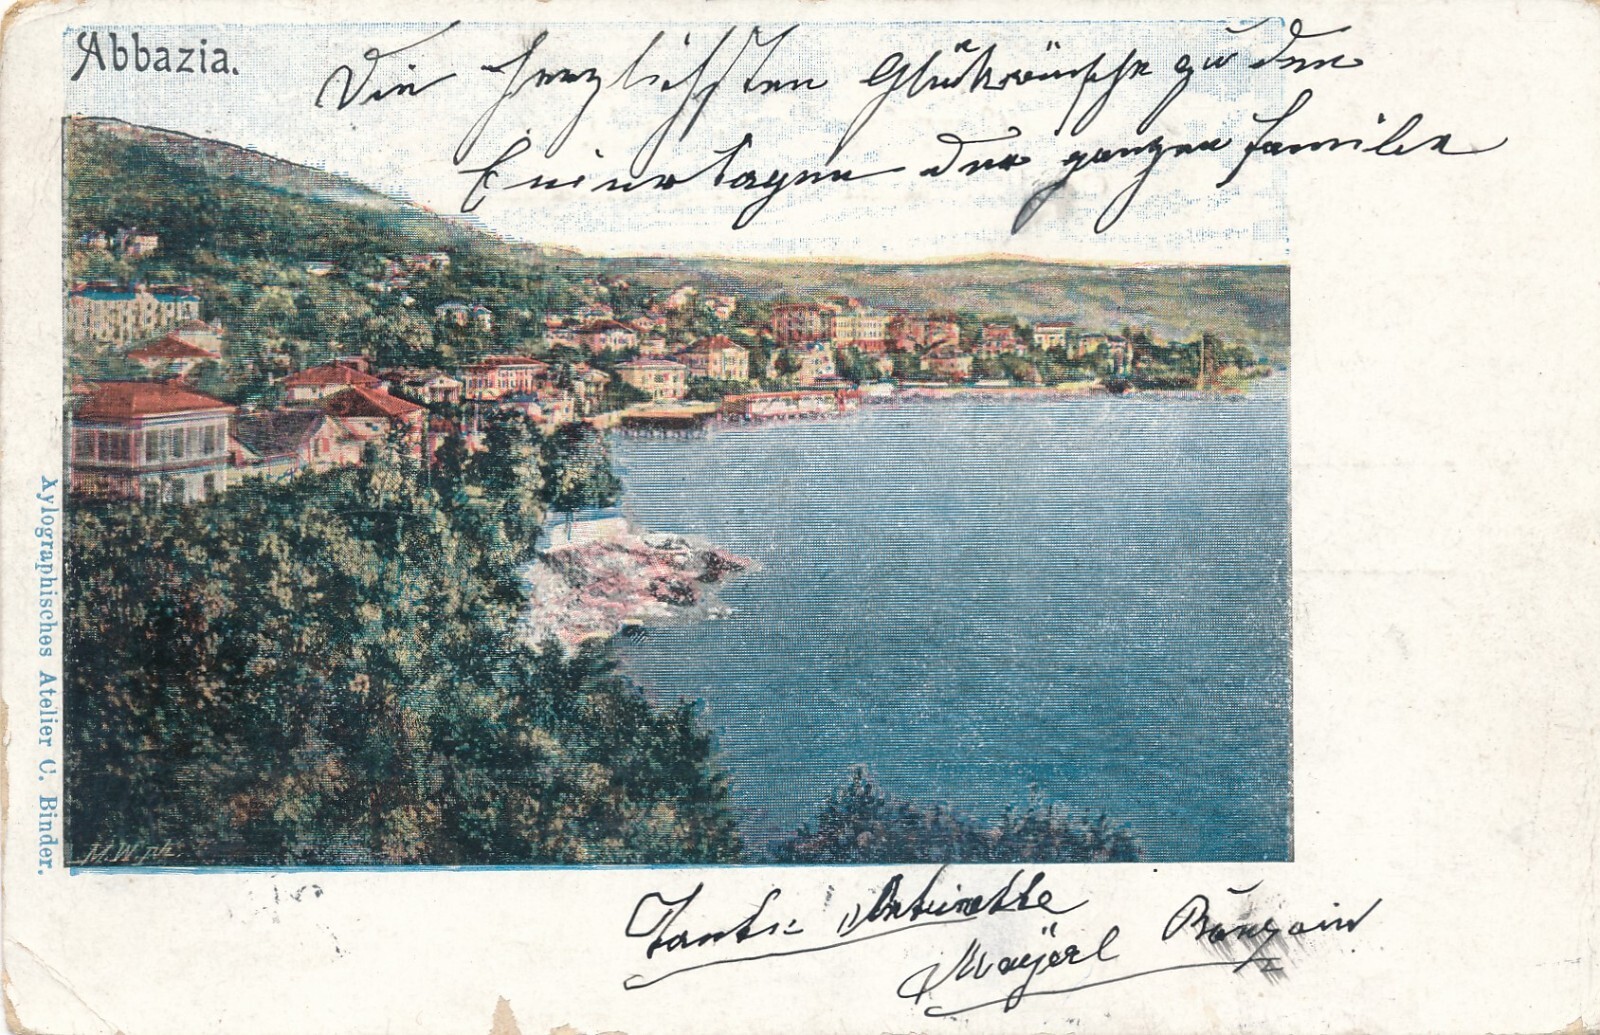 Abbazia.
Die herzlichsten Glückwünsche zu den
der ganzen Familien
Xylographisches Atelier C. Binder.
M. W. ph.
Tante Antoinette
Mayerl